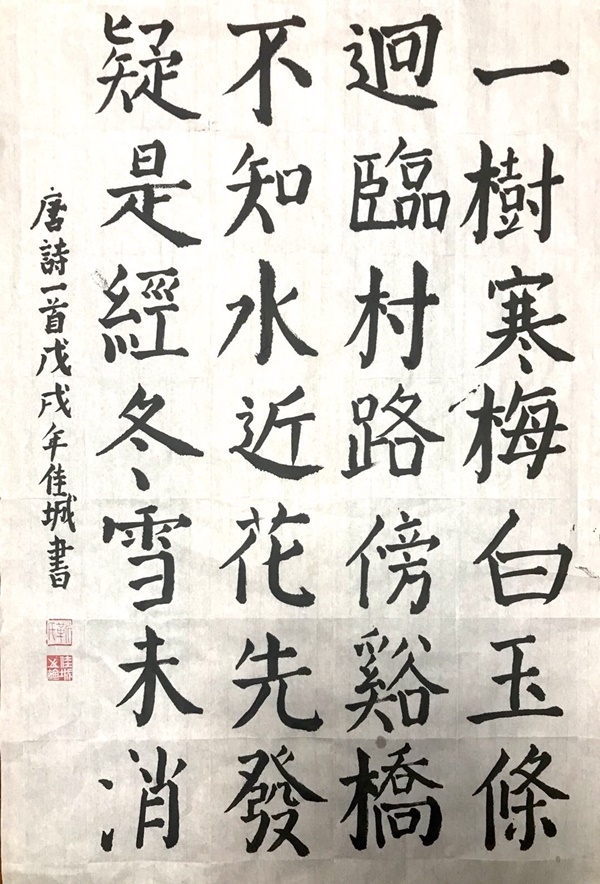 一樹寒梅白玉條
迥臨村路傍谿橋
不知水近花先發
疑是經冬雪未消
唐詩一首戊戌年佳城書